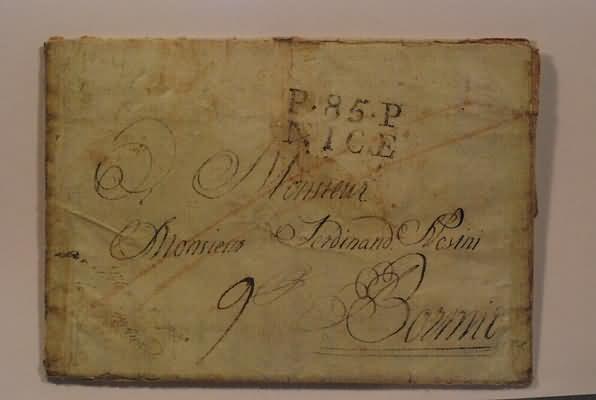 P.85.P
NICE
A Monsieur
Monsieur Ferdinand Resini
9
Bormio